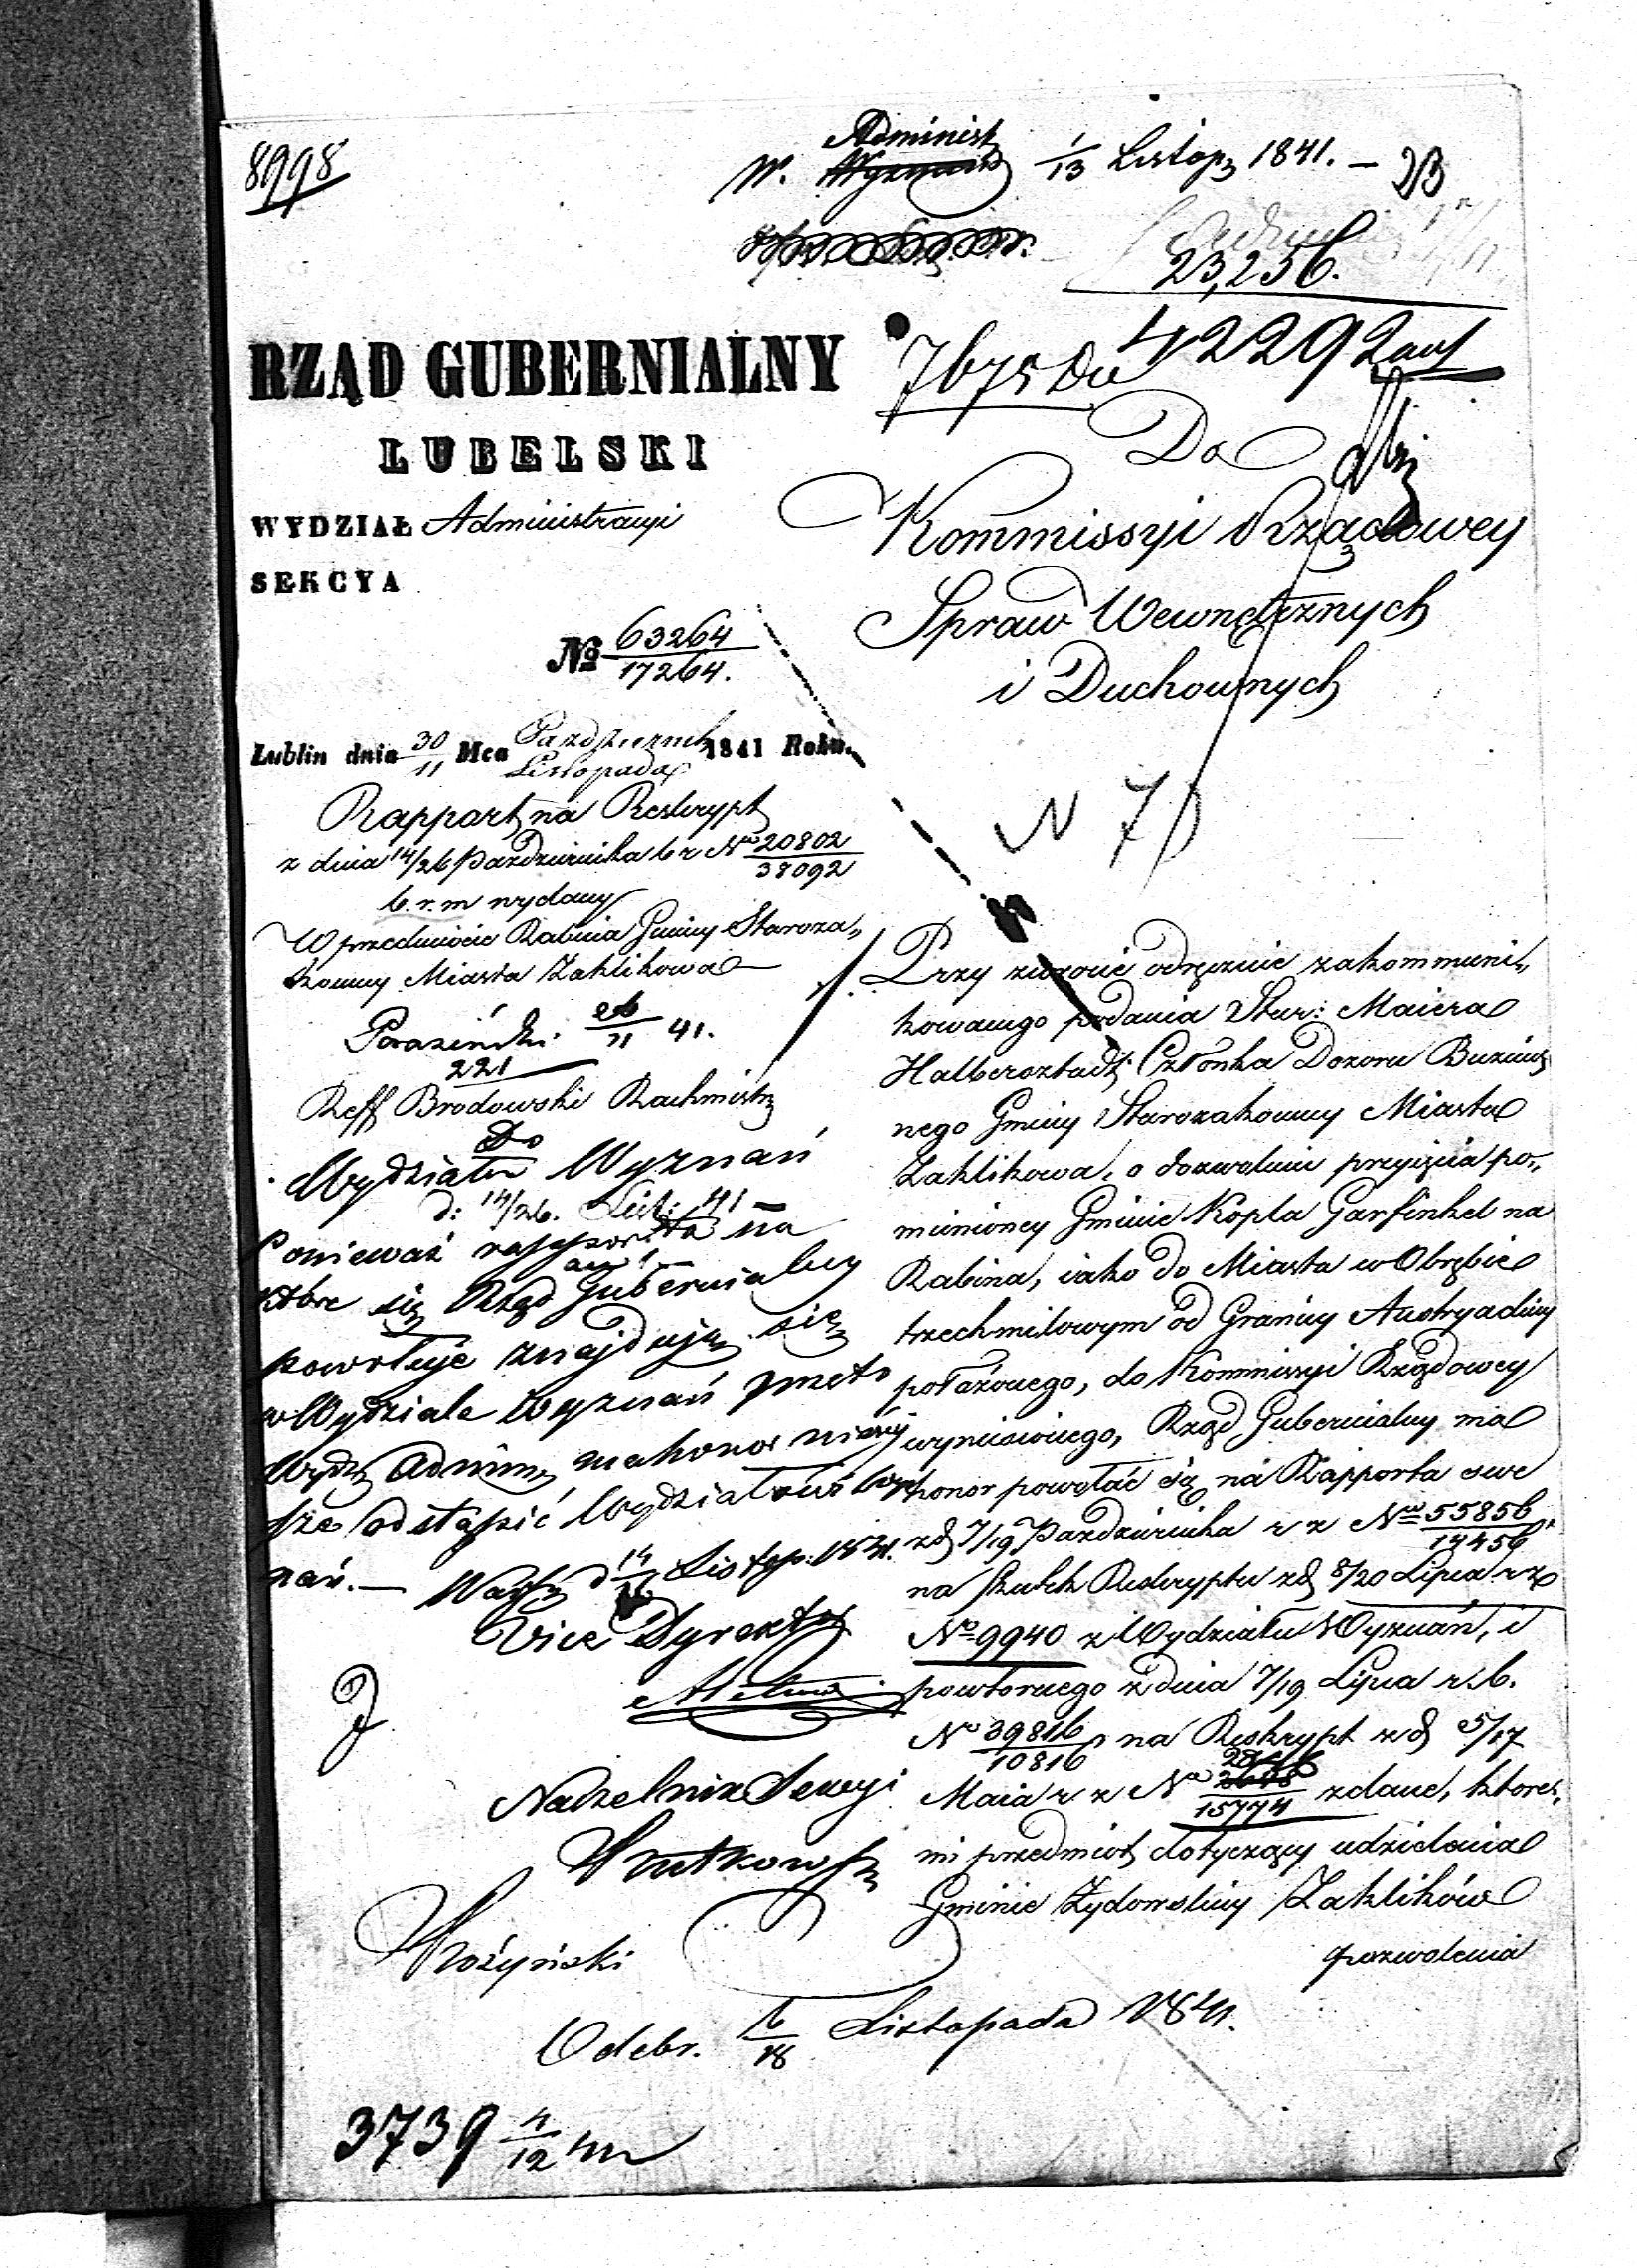 8998
Administ
W. 1/13 Listop 1841. — 23
23,256.
RZĄD GUBERNIALNY
42292
LUBELSKI
Do
WYDZIAŁ Administracyi
Kommissyi Rządowey
SEKCYA
Spraw Wewnętrznych
№ 63264/17264.
i Duchownych
Lublin dnia 30/11 Mca Październik/Listopada 1841 Roku.
N 7
Rapport na Reskrypt
z dnia 14/26 Października b r No 20802/38092
b. r. m wydany
W przedmiocie Rabina Gminy Staroza-
konney Miasta Zaklikowa
26/11 41.
221
Reff Brodowski Rachmistrz
Do
Wydziału Wyznań
d: 14/26. List: 41 —
Ponieważ rapporta na
które się Rząd Gubernialny
powołuje znajdują się
w Wydziale Wyznań przeto
Wydz Admin ma honor niniej
sze odstąpić Wydziałowi Wyz
nań. — Wars d 14/26 Listop. 1841.
Vice Dyrektor
Naczelnik Sekcyi
Przy zwrocie odręcznie zakommuni-
kowanego podania Star: Maiera
Halbersztadt Członka Dozoru Bużnicz
nego Gminy Starozakonney Miasta
Zaklikowa, o dozwolenie przyjęcia po-
mienioney Gminie Kopla Garfinkel na
Rabina, iako do Miasta w Obrębie
trzechmilowym od Granicy Austryackiey
położonego, do Kommissyi Rządowey
wyniesionego, Rząd Gubernialny ma
honor powołać się na Rapporta swe
z d 7/19 Października r z No 55856/14456,
na skutek Reskryptu z d 8/20 Lipca r z
No 9940 z Wydziału Wyznań, i
powtornego z dnia 7/19 Lipca r. b.
No 39816/10816 na Reskrypt z d 5/17
Maia r z No /15774 zdane, które-
mi przedmiot dotyczący udzielenia
Gminie Żydowskiey Zaklików
pozwolenia
Odebr. 6/18 Listopada 1841.
3739 4/12 41